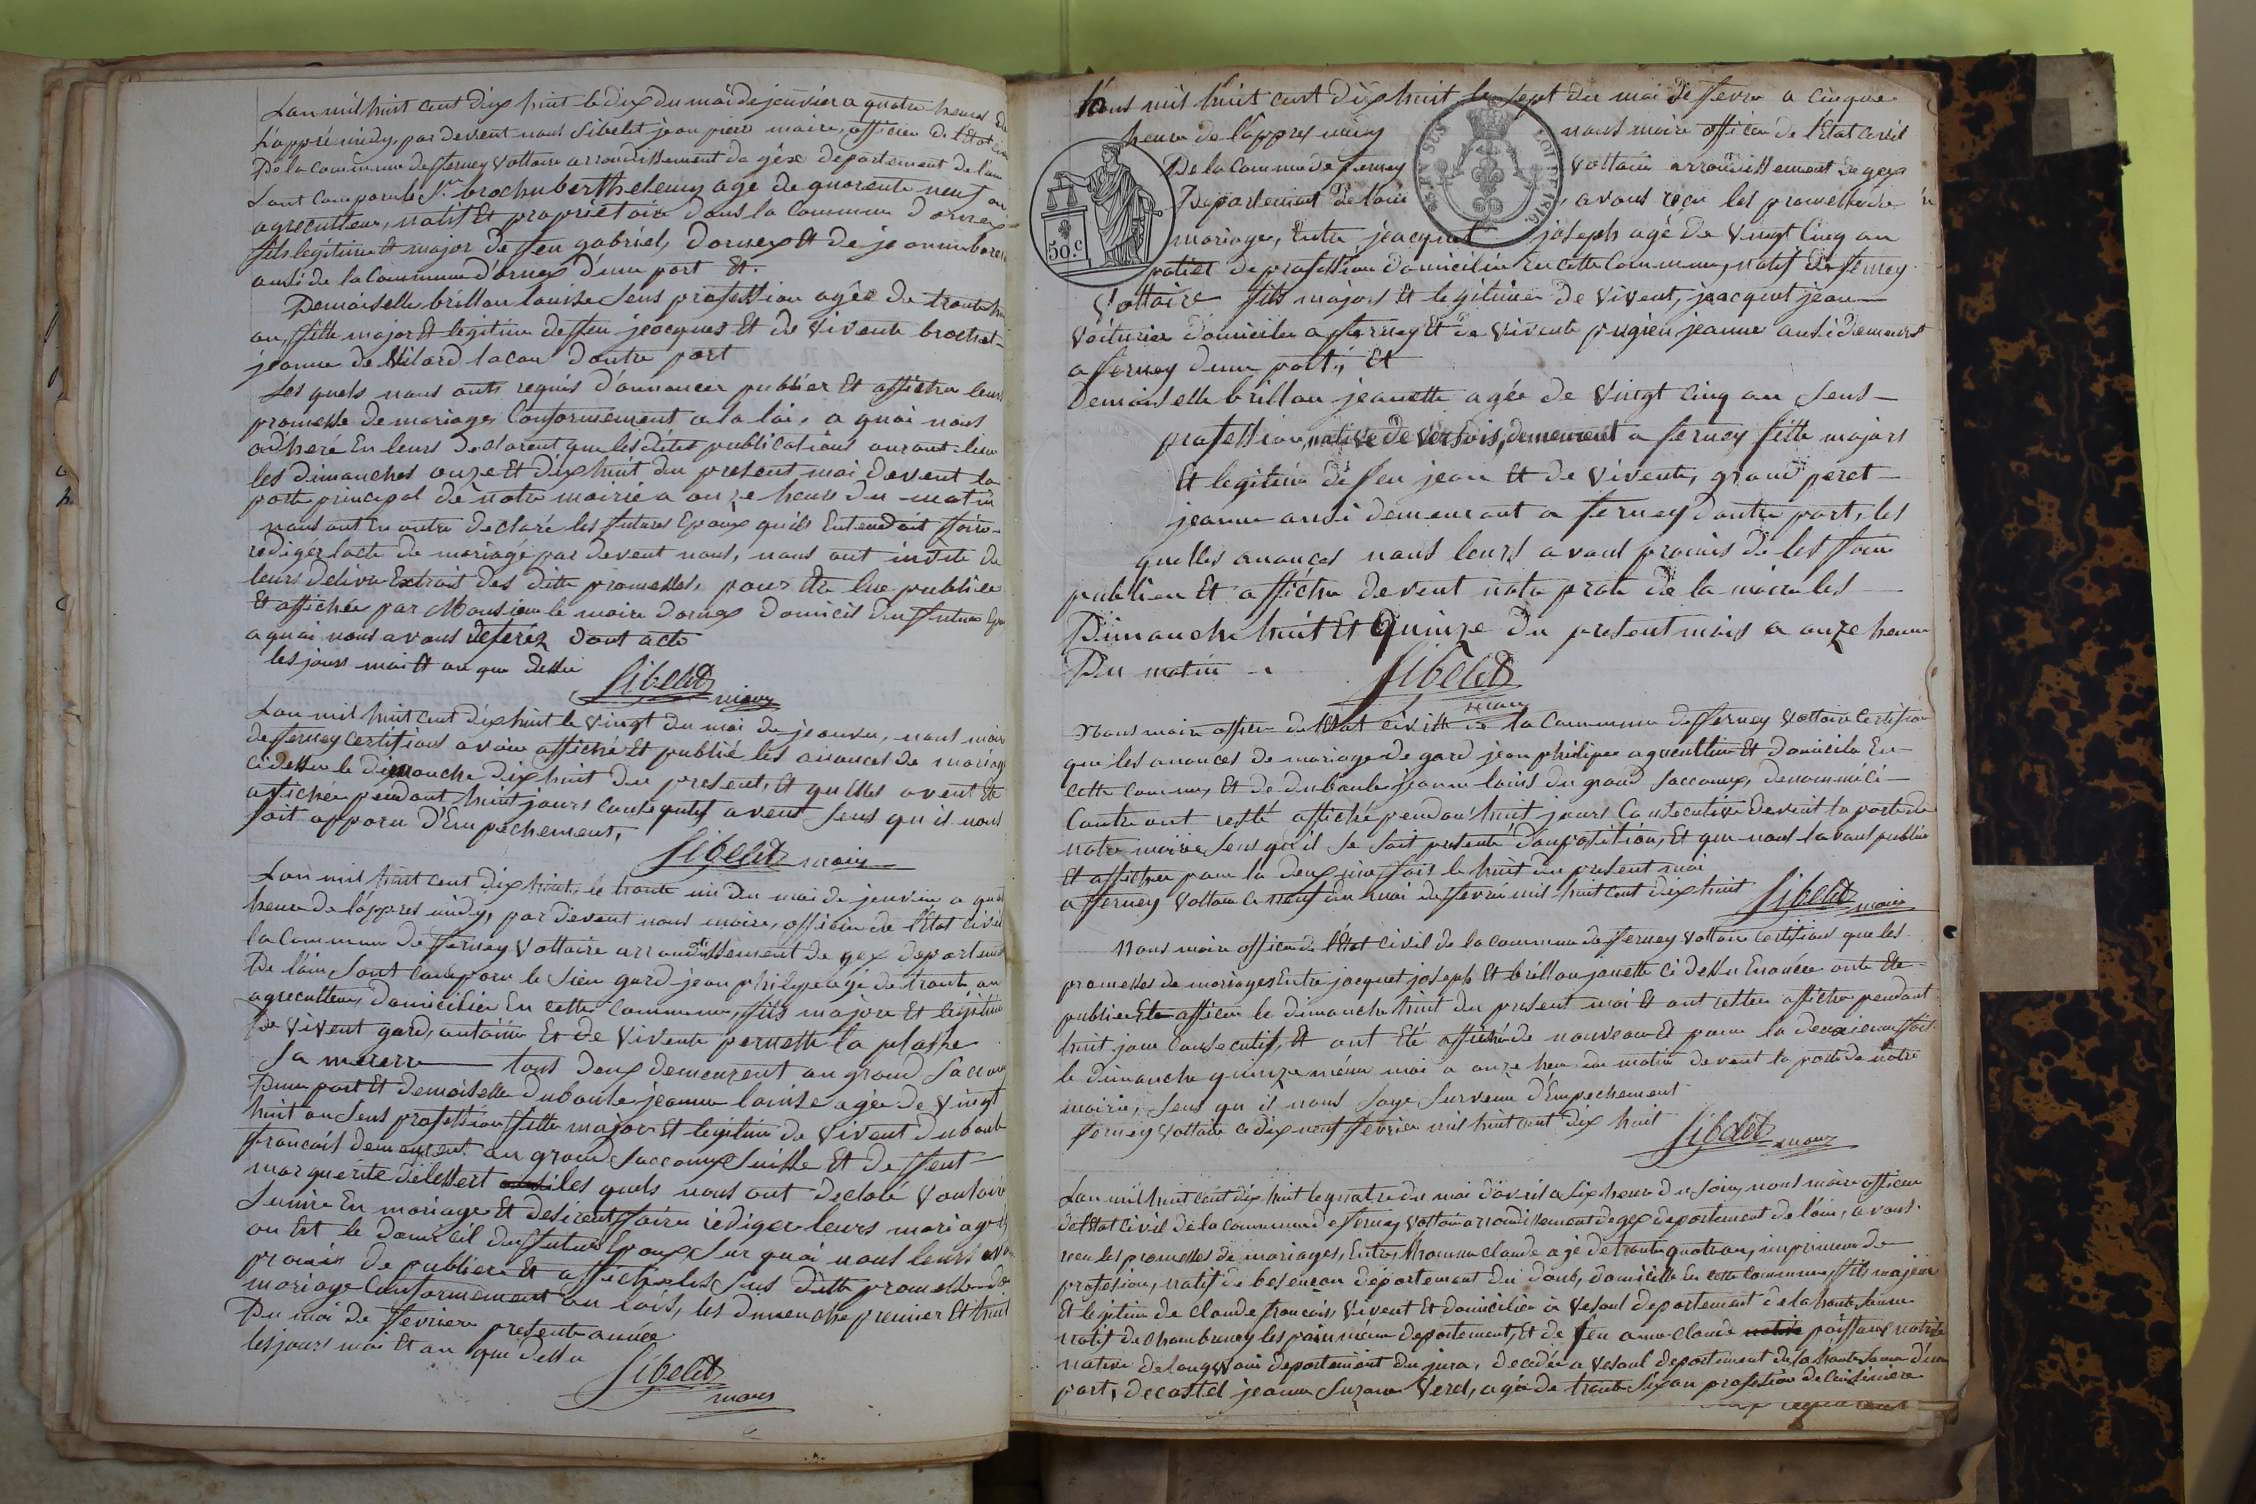 Lan mil huit cent dix huit le dix du moi de jenvier a quatre heures de
l'apprè midy, par devent nous Sibelet jean pierre maire, officier de l'Etat civil
De la commune de ferney voltaire arrondissement de gex departement de l'ain
Sont comparu le Sr brochu berthelemy agé de quarente neuf an
agreculteur, natif Et propriétaire dans la commune d'ornex
fils légitime et major de feu gabriel, d'ornex Et de jeanne
ausi de la commune d'ornex d'une part Et.
Demoiselle brillon louise sens profession agée de trente
an, fille major et legitime de feu jeacques Et de vivente brochet
jeanne de d'autre part
Les quels nous onts requis d'annoncer publier Et afficher leurs
promesse de mariages Conformement a la loi, a quoi nous
adheré En leurs declarent que les dites publications auront lieu
les dimanches onze Et dix huit du present moi devent la
porte principal de notre mairie a onze heure du matin
nous ont En outre declaré les futures Epoux qu'ils Entendoit faire
rediger l'acte de mariage par devent nous, nous ont invité de
leurs delivre Extrait des dite promesses, pour Etre lue publiée
Et affichée par Monsieur le maire d'ornex domicil du future Epoux
a quoi nous avons deferéz dont acte
les jours moi Et an que dessu
Sibelet maire
Lan mil huit cent dix huit le vingt du moi de jeanvier, nous maire
de ferney certifions avoir affiché Et publié les anonces de mariage
ci dessu le dimanche dix huit du present, Et quelles avent Eté
afichée pendant huit jours consequtifs avent sens qu'il nous
soit apparu d'Empechement,
Sibelet maire
Lan mil huit cent dix huit, le trente un du moi de jenvier a quatre
heure de l'appres midy, par devent nous maire, officier de l'Etat civil
la commune de ferney voltaire arrondissement de gex departement
De l'ain sont comparu le sieur gard jean philippe agé de trente an
agreculteur, domicilier En cette commune, fils majore Et légitime
De vivent gard, antoine Et de vivente pernette la plasse
Sa mererre tous deux demeurent au grand Saconnex
D'une part Et demoiselle duboule jeanne louise agée de vingt
huit an sens profession fille major Et legitime de vivent duboule
francois demeurent au grand Sacconnex Suisse Et deffent
marguerite délessert les quels nous ont declaré vouloir
S'unire En mariage Et desirent faire rediger leurs mariage
ou Est le domicil du futur Epoux Sur quoi nous leurs avons
promis de publier Et afficher les Sus dite promesse de
mariage Conformement au lois, les dimenche premier Et huit
Du moi de fevriere presente année
les jours moi Et an que dessu
Sibelet
maire
Lans mil huit cent dix huit le sept du moi de fevre a cinque
heure de l'appres midy nous maire officier de l'Etat civil
De la Commune de ferney voltaire arrondissement de gex
Departement de l'ain, avons reçu les promesse de
mariage, Entre jeacquet joseph agé de vingt Cinq an
50.c
potier de profession domicilier En cette Commune, natif de ferney
Voltaire fils majors Et legitime de vivent, jeacquet jean
Voiturier domicilier a ferney Et de vivente pugieu jeanne ausi demeurt
a ferney d'une part, Et
Demoiselle brillon jeanette agée de vingt cinq an sens
profession, native de versois, demeurent a ferney fille majors
Et legitime de feu jean Et de vivente, grand peret
jeanne ausi demeurant a ferney d'autre part, les
quelles anonces nous leurs avons promis de les faire
publier Et afficher devent notre porte de la mairie les
Dimanche huit Et quinze du present mois a onze heure
Du matin
Sibelet
maire
Nous maire officier de l'Etat civil de la commune de ferney voltaire certifions
que les anonces de mariage de gard jean philipe agreculteur Et domicile En
cette commune, Et de duboule jeanne louise du grand Sacconnex, denommé ci
contre ont resté affiché pendant huit jours Consecutive devent la porte de
notre mairie sens qu'il se soit presenté d'opposition, Et que nous l'avons publier
Et afficher pour la deuxieme fois le huit du present moi
a ferney voltaire ce neuf du moi de fevrié mil huit cent dix huit Sibelet maire
Nous maire officier de l'Etat civil de la commune de ferney voltaire certifions que les
promesses de mariages Entre jacquet joseph Et brillon janette ci dessu Enoncée onte Ete
publier Ete afficer le dimanche huit du present moi Et ont restee afficher pendant
huit jour consecutif, Et ont Eté affiché de nouveau Et pour la deuxieme fois
le dimanche quinze même moi a onze heure du matin devent la porte de notre
mairie, sens qu'il nous soye survenu d'Empechement
ferney voltaire ce dix neuf fevrier mil huit cent dix huit
Sibelet maire
Lan mil huit cent dix huit le quatre du moi d'avril a six heure du soir, nous maire officier
de l'Etat civil de la commune de ferney voltaire arrondissement de gex departement de l'ain, avons
recu les promesses de mariages, Entre claude agé de trente quatre an, imprimeur de
profession, natif de besençon département du doub, domicille En cette commune, fils majeur
Et legitime de claude francois, vivent Et domicilier a vesoul departement de la haute saone
natif de chambornay les pain même departement, Et de feu anne claude
native de departement du jura, decedée a vesoul departement de la haute saone d'une
part, decastel jeanne Suzane Verel, agée de trente six an profession de cuisiniere